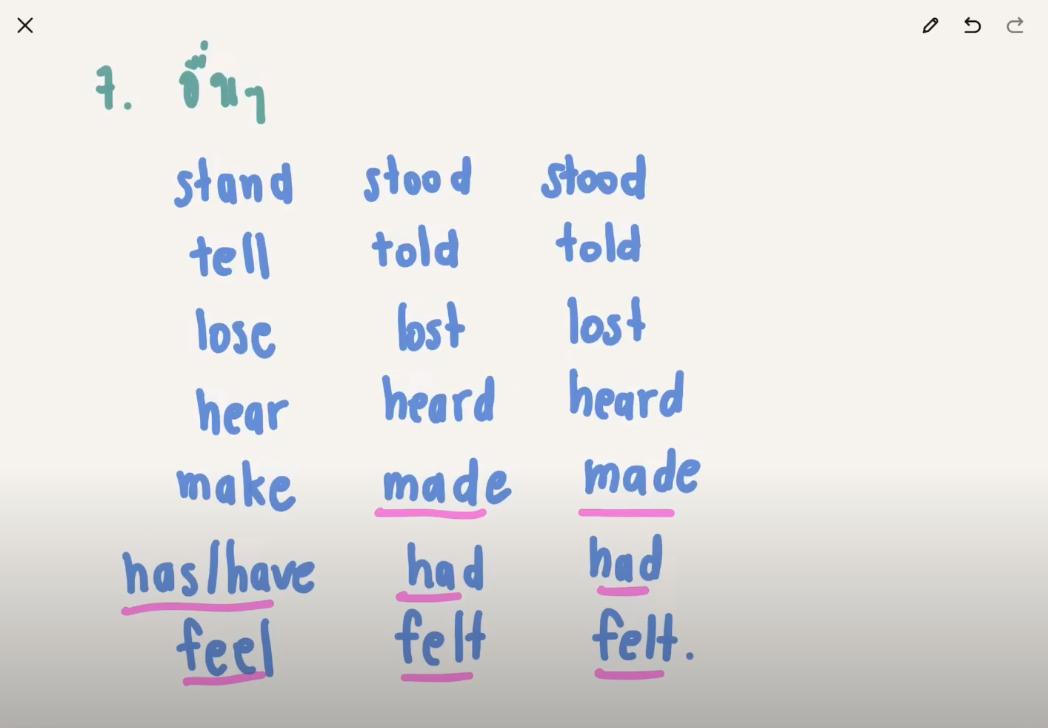 7. อื่นๆ
stand stood stood
tell told told
lose lost lost
hear heard heard
make made made
has/have had had
feel felt felt.